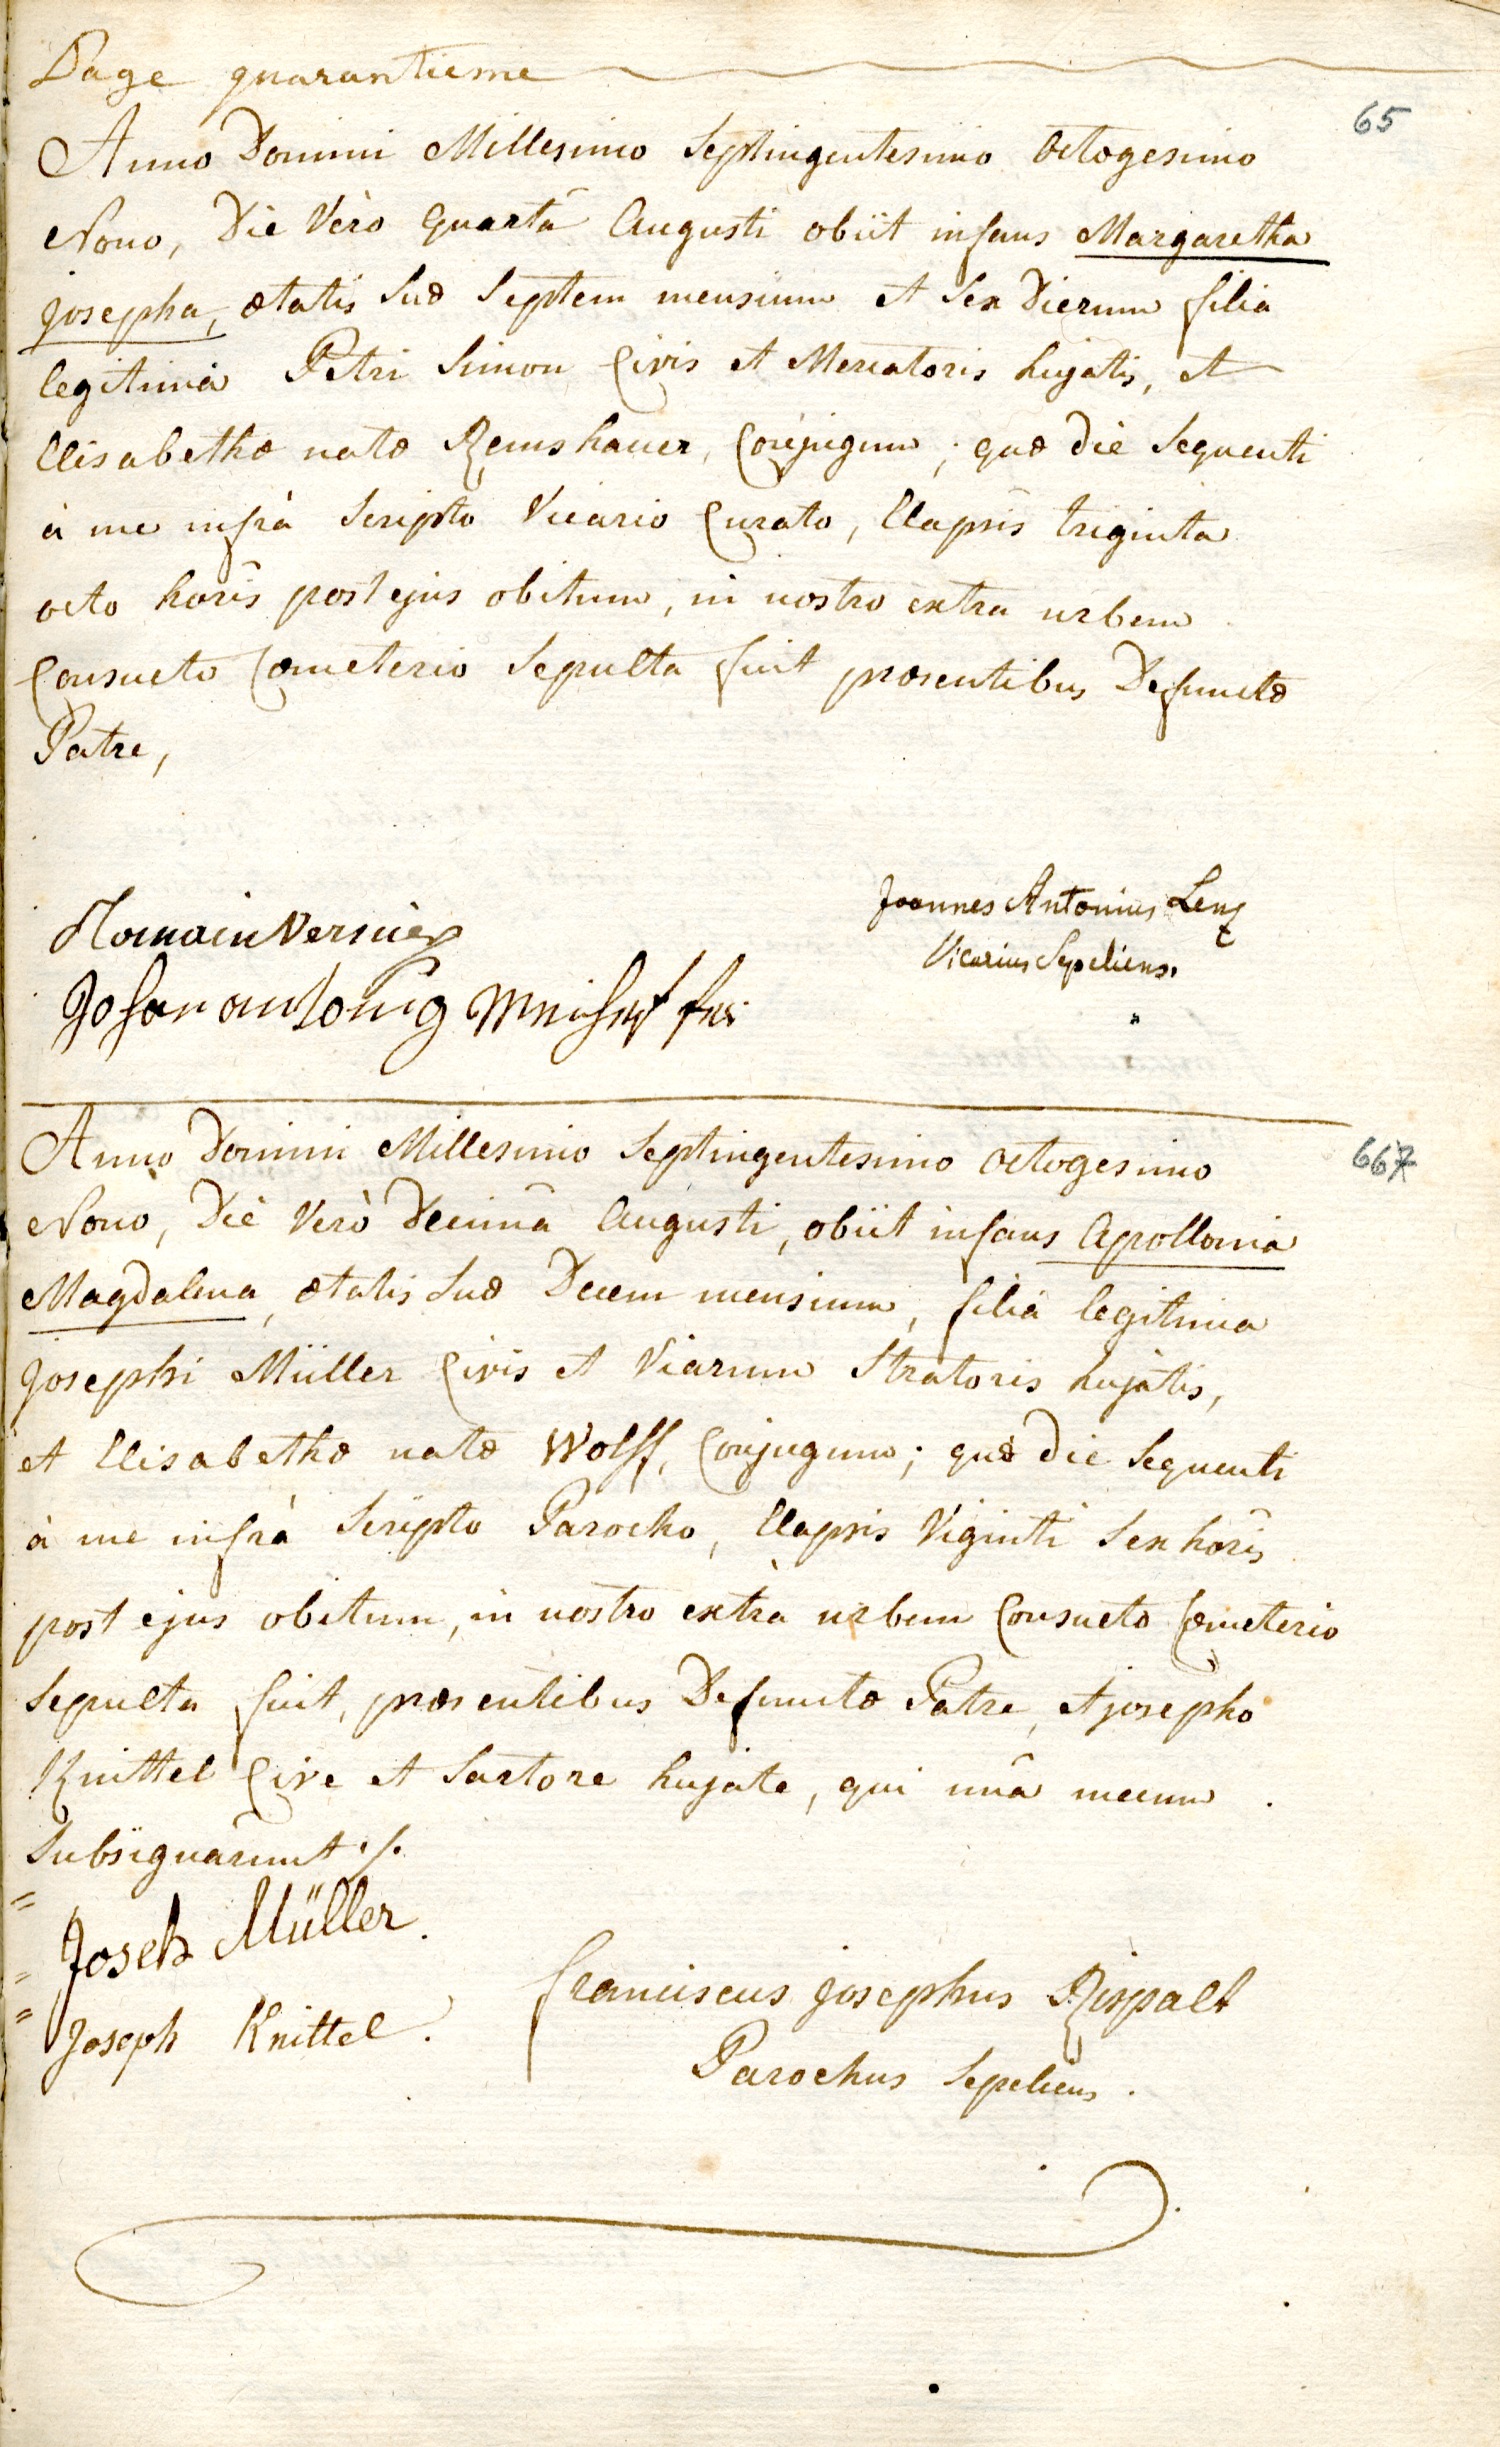 Page quarantieme
65
Anno Domini Millesimo Septingentesimo Octogesimo
Nono, Die Vero Quartâ Augusti obiit infans Margaretha
Josepha, ætatis Suæ Septem mensium et Sex Dierum filia
legitima Petri Simon Civis et Mercatoris hujatis, et
Elisabethæ natæ Remshauer, Conjugum; quæ die Sequenti
à me infrà Scripto Vicario Curato, Elapsis triginta
octo horis post ejus obitum, in nostro extra urbem
Consueto Cœmeterio Sepulta fuit præsentibus Defunctæ
Patre,
Joannes Antonius Lenz
Romain Vernier
Vicarius Sepeliens.
667
Anno Domini Millesimo Septingentesimo Octogesimo
Nono, Die Verò Decimâ Augusti, obiit infans Apollonia
Magdalena, ætatis Suæ Decem mensium, filia legitima
Josephi Müller Civis et Viarum Stratoris hujatis,
et Elisabethæ natæ Wolff, Conjugum; quæ die Sequenti
à me infrà Scripto Parocho, Elapsis Viginti Sex horis
post ejus obitum, in nostro extrà urbem Consueto Cœmeterio
Sepulta fuit, præsentibus Defunctæ Patre, et josepho
Knittel Cive et Sartore hujate, qui unâ mecum
Subsignarunt
Joseh Müller.
Franciscus josephus Rispalt
Joseph Knittel.
Parochus Sepeliens.